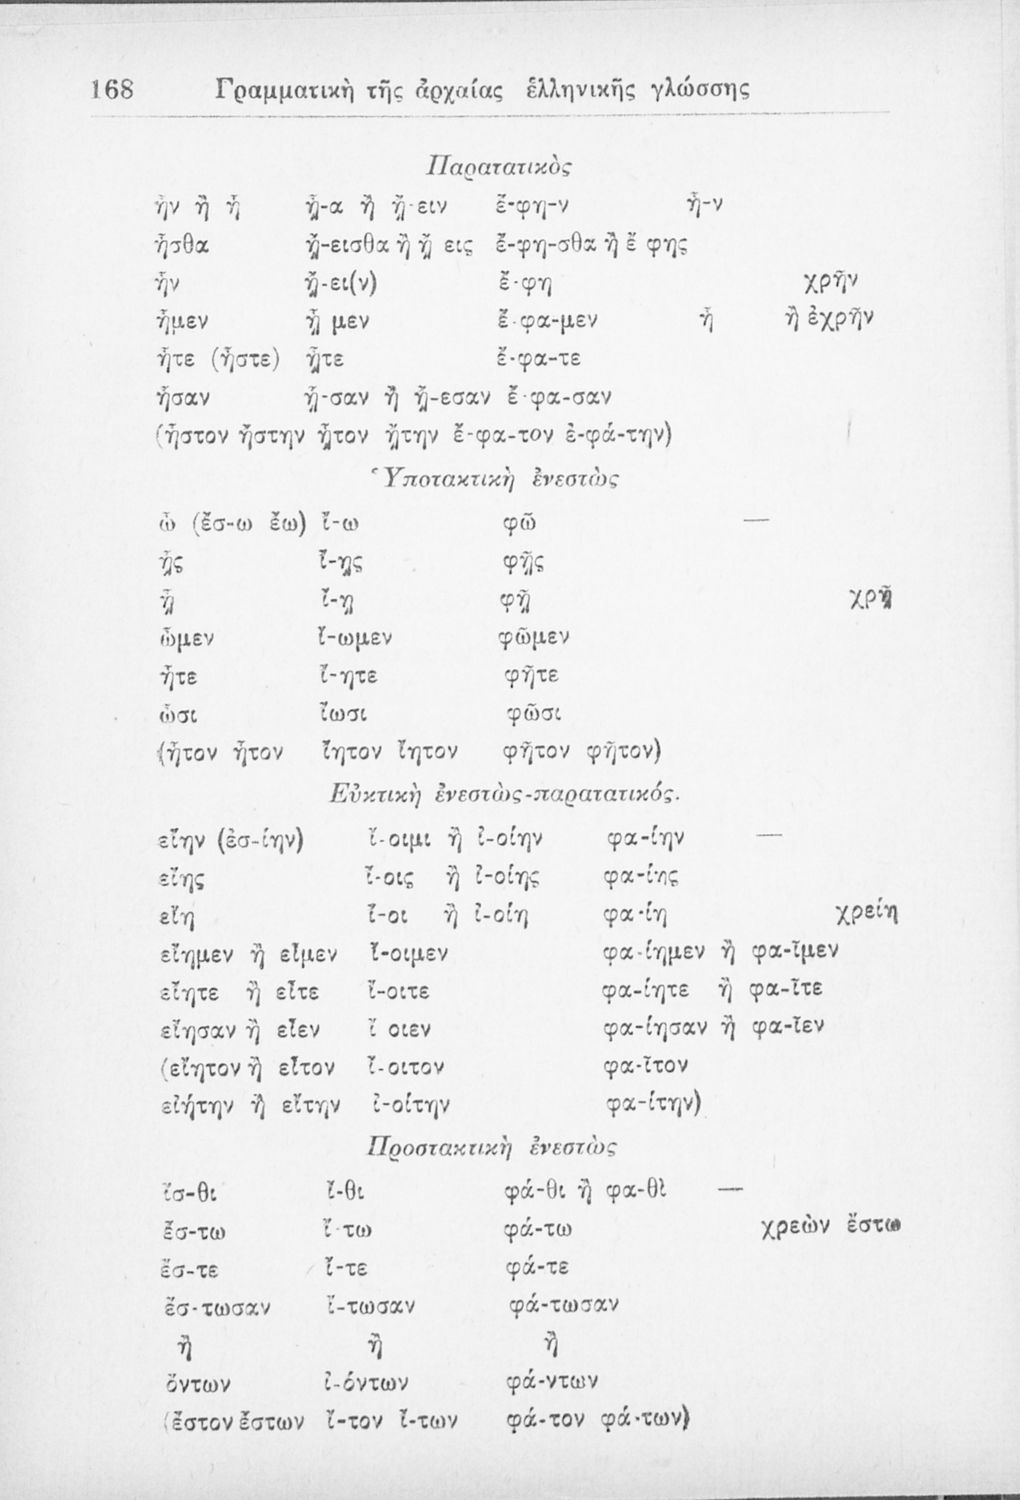 168 Γραμματικὴ τῆς ἀρχαίας ἑλληνικῆς γλώσσης
Παρατατικὸς
ἦν ἢ ἦ ᾖ-α ἢ ᾔ-ειν ἔ-φη-ν ἦ-ν
ἦσθα ᾔ-εισθα ἢ ᾔ εις ἔ-φη-σθα ἢ ἔ φης
ἦν ᾔ-ει(ν) ἔ-φη χρῆν
ἦμεν ᾖ μεν ἔ-φα-μεν ἦ ἢ ἐχρῆν
ἦτε (ἦστε) ᾖτε ἔ-φα-τε
ἦσαν ᾖ-σαν ἢ ᾔ-εσαν ἔ-φα-σαν
(ἦστον ἤστην ᾖτον ᾔτην ἔ-φα-τον ἐ-φά-την)
Ὑποτακτικὴ ἐνεστὼς
ὦ (ἔσ-ω ἔω) ἴ-ω φῶ —
ᾖς ἴ-ῃς φῇς
ᾖ ἴ-ῃ φῇ χρῇ
ὦμεν ἴ-ωμεν φῶμεν
ἦτε ἴ-ητε φῆτε
ὦσι ἴωσι φῶσι
(ἦτον ἦτον ἴητον ἴητον φῆτον φῆτον)
Εὐκτικὴ ἐνεστὼς-παρατατικός.
εἴην (ἐσ-ίην) ἴ-οιμι ἢ ἰ-οίην φα-ίην —
εἴης ἴ-οις ἢ ἰ-οίης φα-ίης
εἴη ἴ-οι ἢ ἰ-οίη φα-ίη χρείη
εἴημεν ἢ εἶμεν ἴ-οιμεν φα-ίημεν ἢ φα-ῖμεν
εἴητε ἢ εἶτε ἴ-οιτε φα-ίητε ἢ φα-ῖτε
εἴησαν ἢ εἶεν ἴ οιεν φα-ίησαν ἢ φα-ῖεν
(εἴητον ἢ εἶτον ἴ-οιτον φα-ῖτον
εἰήτην ἢ εἴτην ἰ-οίτην φα-ίτην)
Προστακτικὴ ἐνεστὼς
ἴσ-θι ἴ-θι φά-θι ἢ φα-θὶ —
ἔσ-τω ἴ-τω φά-τω χρεὼν ἔστω
ἔσ-τε ἴ-τε φά-τε
ἔσ-τωσαν ἴ-τωσαν φά-τωσαν
ἢ ἢ ἢ
ὄντων ἰ-όντων φά-ντων
(ἔστον ἔστων ἴ-τον ἴ-των φά-τον φά-των)